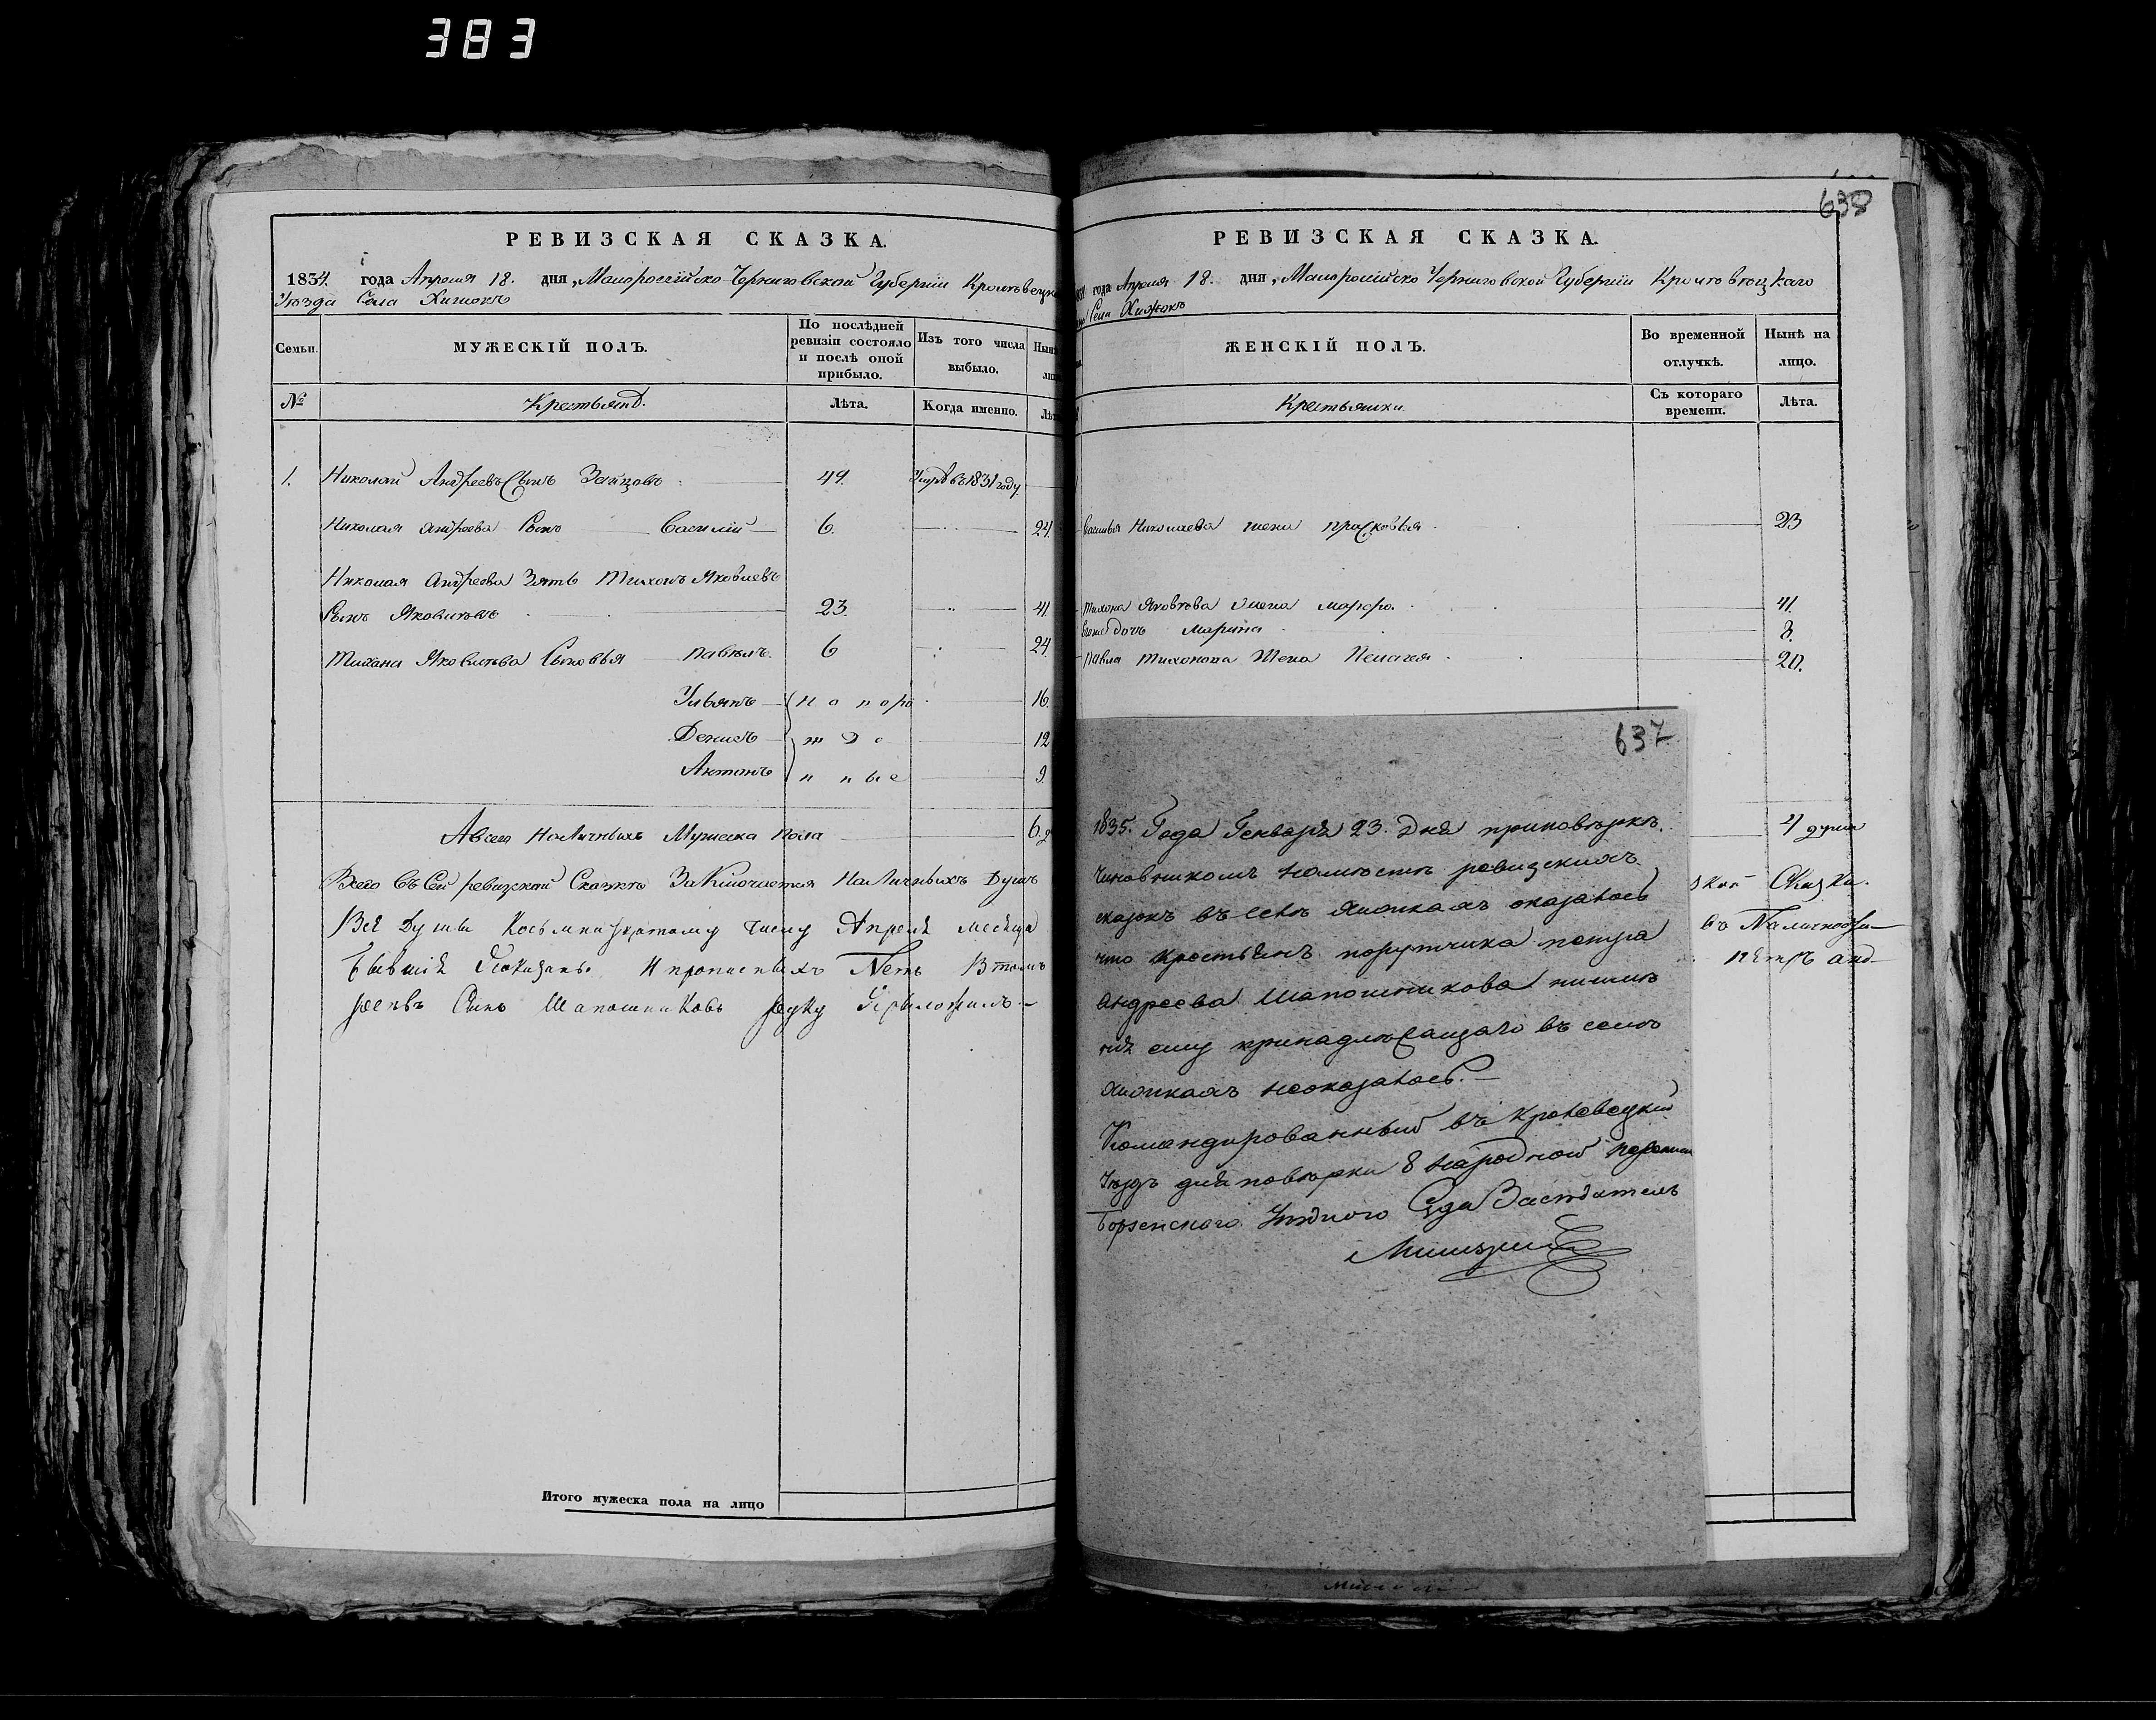 383
РЕВИЗСКАЯ СКАЗКА.
1834 года Апреля 18. дня, Малороссійско Черниговской Губерніи Кролѣвецка
Уѣзда Села Хижокъ
Семьи.
МУЖЕСКІЙ ПОЛЪ.
По послѣдней ревизіи состояло и послѣ оной прибыло.
Изъ того числа выбыло.
№
Крестьянѣ.
Лѣта.
Когда именно.
1. Николай Андреевъ Сынъ Зайцовъ 49. Умре въ 1831 году
Николая Андреева Сынъ Василий 6. 24.
Николая Андреева Зять Тихонъ Яковлевъ
Сынъ 23. 41
Тихана Яковлева Сыновья Павелъ 6 24.
Ульянъ 16.
Денисъ 12
Антонъ 9.
рожденные
Авсего Наличныхъ Мужеска пола 6.
Всего Въ Сей ревизской Сказкѣ Заключается Наличныхъ Душъ
Всѣ Души Косьмнадцатому числу Апреля месяца
бывшія показаны. И прописныхъ Nетъ Втомъ
реевъ Сынъ Шапошниковъ руку приложилъ.
Итого мужеска пола на лицо
638
РЕВИЗСКАЯ СКАЗКА.
года Апреля 18. дня, Малоросійско Черниговской Губерніи Кролѣвецкаго
Села Хижокъ
ЖЕНСКІЙ ПОЛЪ.
Во временной отлучкѣ.
Нынѣ на лицо.
Крестьянки
Съ котораго времени.
Лѣта.
Василья Николаева жена Прасковья 23
Тихона Яковлева Жена Марфа. 41.
Дочь Марина 8.
Павла Тихонова Жена Пелагея 20.
4 души
Сказки.
въ Наличности
Петръ анд
637
1835. Года Генваря 23. Дня приповѣркѣ
Чиновникомъ намѣсте ревизскихъ
сказокъ въ селѣ Хижкахъ оказалось
что крестьянъ порутчика петра
Андреева Шапошникова
ему принадлежащаго въ селѣ
Хижкахъ неоказалось.
Командированный въ Кролевецкій
Уѣздъ для повѣрки 8 народной переписи
Борзенского Уѣздного Суда Заседатель